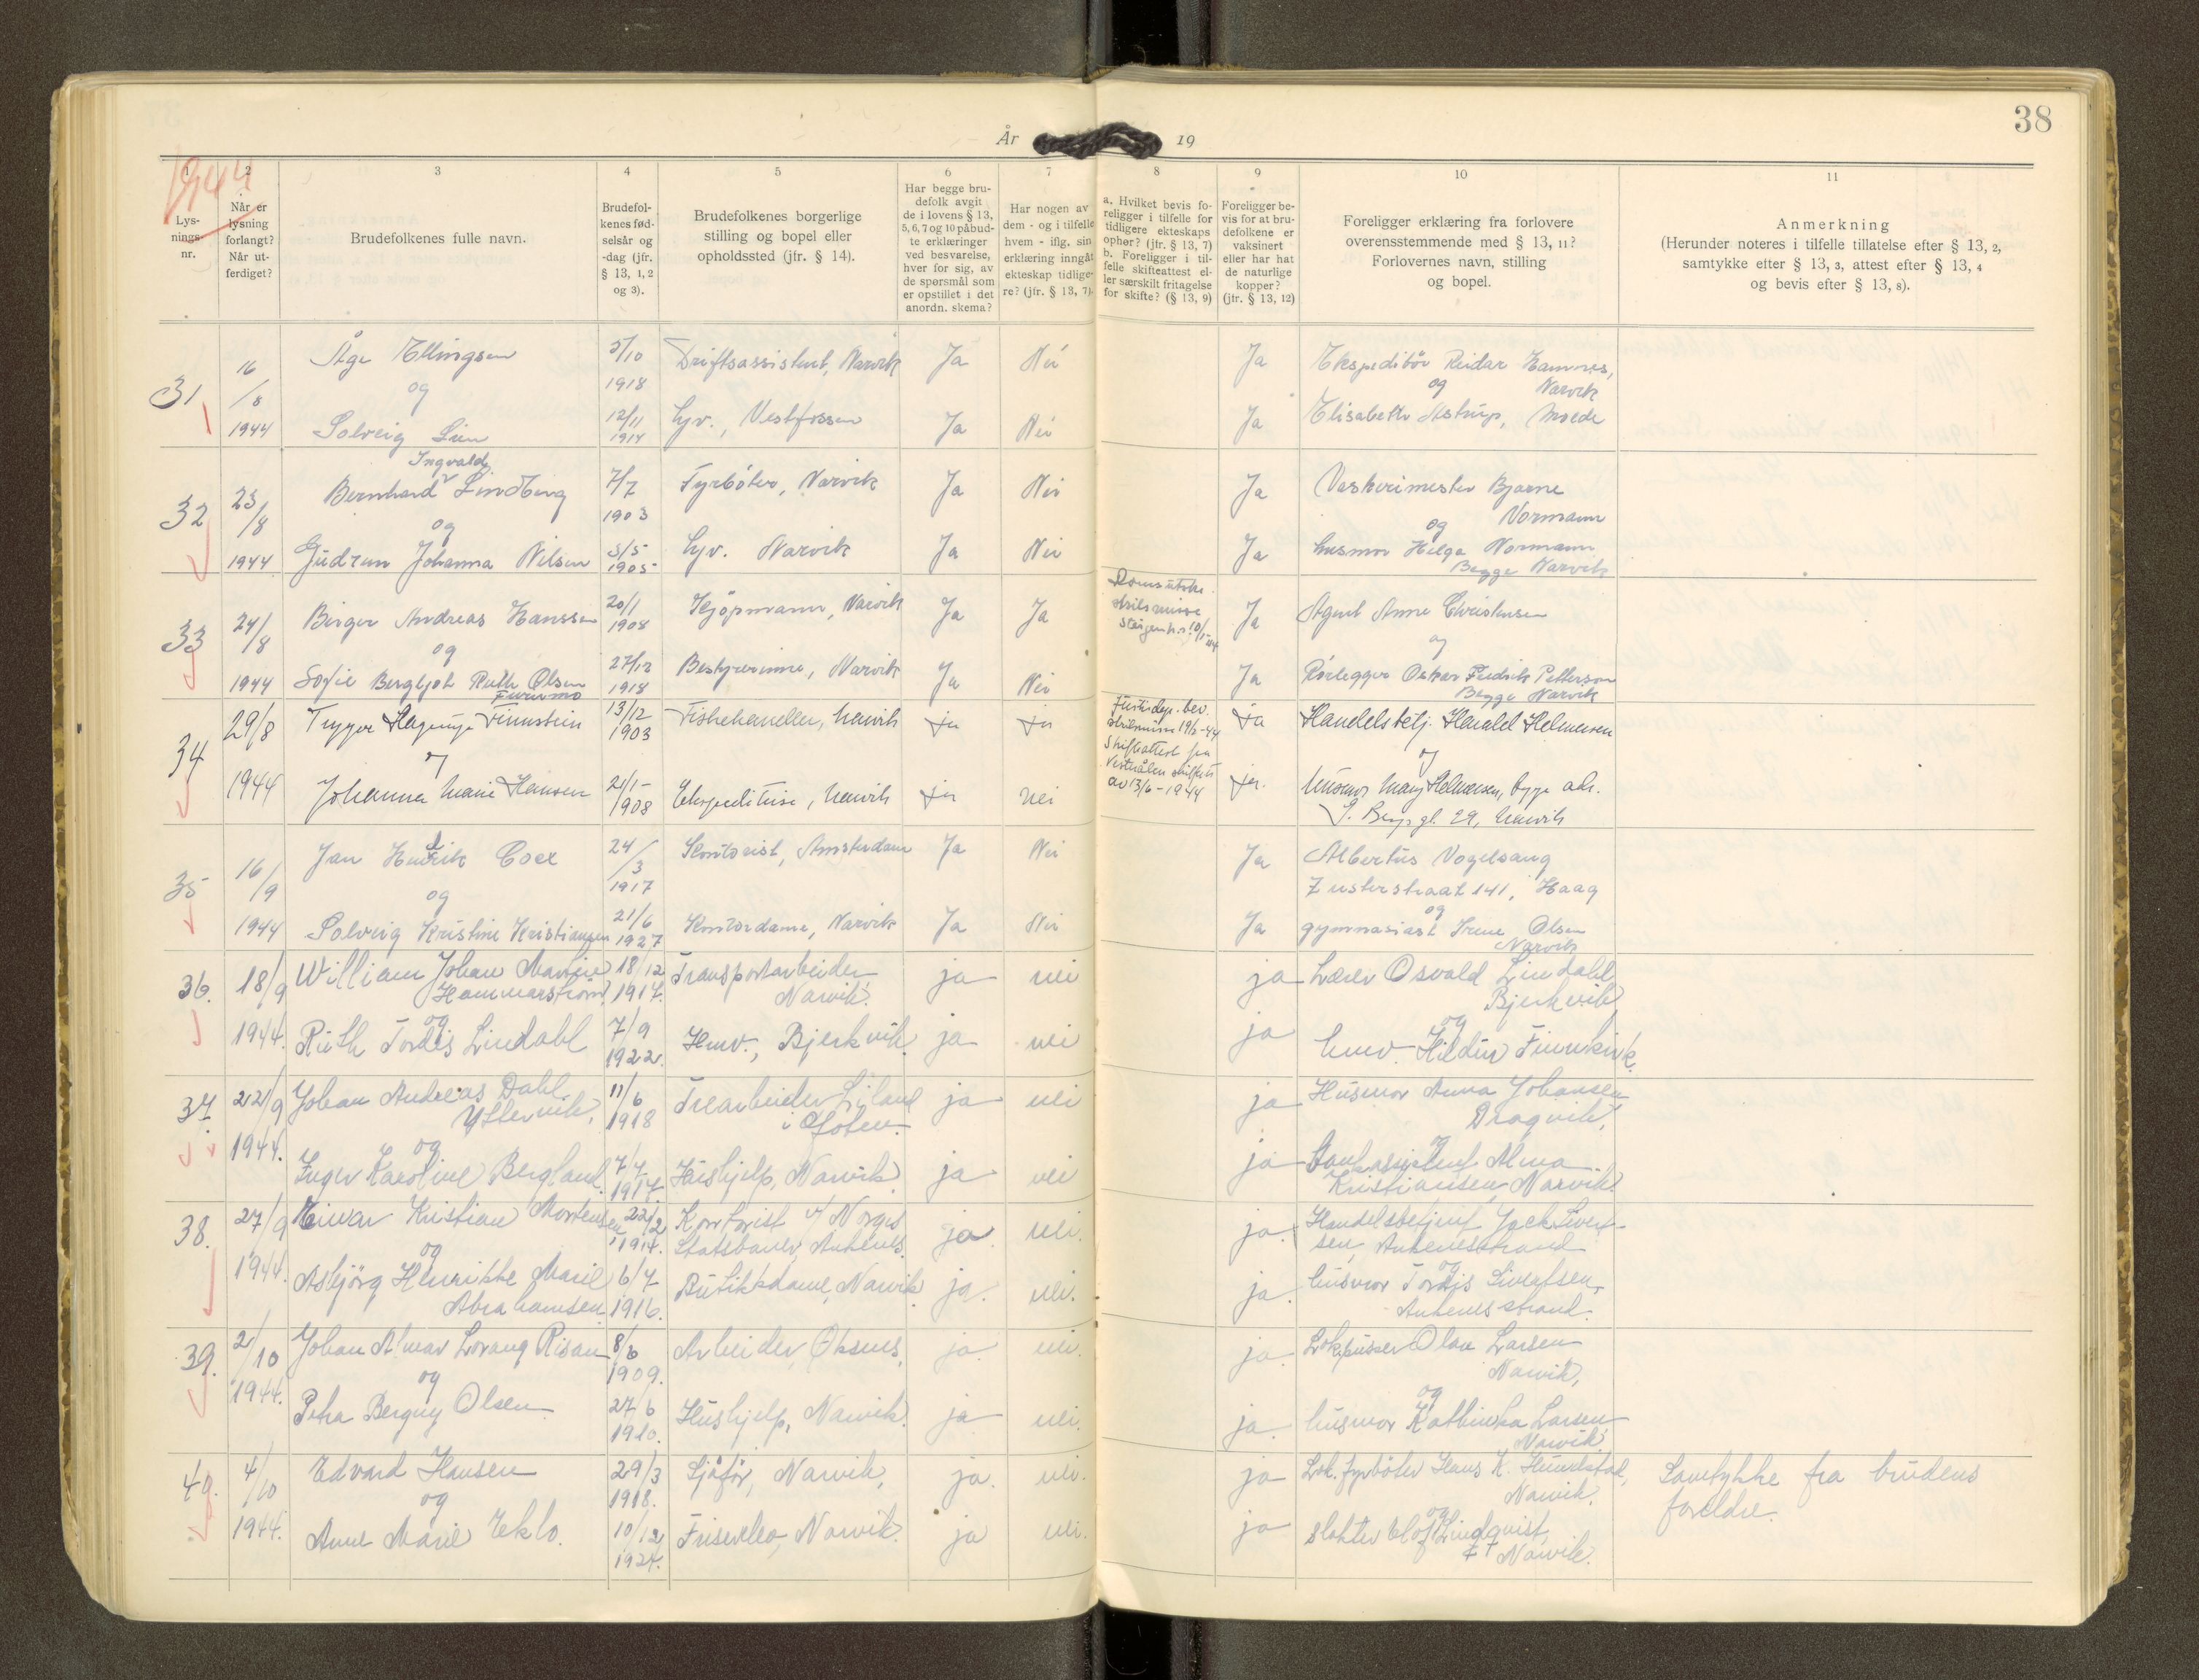 38
År 19
1944
1
Lys-
nings-
nr.
2
Når er
lysning
forlangt?
Når ut-
ferdiget?
3
Brudefolkenes fulle navn.
4
Brudefol-
kenes fød-
selsår og
-dag (jfr.
§ 13, 1, 2
og 3).
5
Brudefolkenes borgerlige
stilling og bopel eller
opholdssted (jfr. § 14).
6
Har begge bru-
defolk avgit
de i lovens § 13,
5, 6, 7 og 10 påbud-
te erklæringer
ved besvarelse,
hver for sig, av
de spørsmål som
er opstillet i det
anordn. skema?
7
Har nogen av
dem - og i tilfelle
hvem - iflg. sin
erklæring inngåt
ekteskap tidlige-
re? (jfr. § 13, 7).
8
a. Hvilket bevis fo-
religger i tilfelle for
tidligere ekteskaps
ophør? (jfr. § 13, 7)
b. Foreligger i til-
felle skifteattest el-
ler særskilt fritagelse
for skifte? (§ 13, 9)
9
Foreligger be-
vis for at bru-
defolkene er
vaksinert
eller har hat
de naturlige
kopper?
(jfr. § 13, 12)
10
Foreligger erklæring fra forlovere
overensstemmende med § 13, 11?
Forlovernes navn, stilling
og bopel.
11
Anmerkning
(Herunder noteres i tilfelle tillatelse efter § 13, 2,
samtykke efter § 13, 3, attest efter § 13, 4
og bevis efter § 13, 8).
31 16/8 1944
Åge Ellingsen 5/10 1918 Driftsassistent, Narvik Ja Nei Ja Ekspeditör Reidar Hamnes, Narvik
og og
Solveig Lien 12/11 1914 Hv., Vestfossen Ja Nei Ja Elisabeth Astrup,
32 23/8 1944
Bernhard Ingvald Lindberg 7/7 1903 Fyrböter, Narvik Ja Nei Ja Vaskerimester Bjarne Normann
og og
Gudrun Johanna Nilsen 5/5 1905 Hv. Narvik Ja Nei Ja husmor Helga Normann
Begge Narvik
33 24/8 1944
Birger Andreas Hanssen 20/1 1908 Kjöpmann, Narvik Ja Ja Ja Agent Arne Christensen
og og
Sofie Bergljot Ruth Olsen Furumo 27/12 1918 Bestyrerinne, Narvik Ja Nei Ja Rörlegger Oskar Fredrik Petterson
Begge Narvik
34 29/8 1944
Trygve Finnstein 13/12 1903 Fiskehandler, Narvik ja ja
Justisdep. bev.
skilsmisse 19/2-44
Skifteattest fra
Vesterålen skifterett
av 13/6-1944
ja Handelsbetj. Harald Helmersen
og og
Johanna Marie Hansen 21/1-1908 Ekspeditrise, Narvik ja nei ja. husmor Mary Helmersen, begge adr.
29, Narvik
35 16/9 1944
Jan Hendrik Coex 24/3 1917 Kontorist, Amsterdam Ja Nei Ja Albertus Vogelsang
Zusterstraat 141, Haag
og og
Solveig Kristine Kristiansen 21/6 1927 Kontordame, Narvik Ja Nei Ja gymnasiast Irene Olsen
Narvik
36. 18/9 1944.
William Johan Hammarström 18/12 1917. Transportarbeider Narvik. ja nei ja Lærer Osvald Lindahl Bjerkvik
og og
Ruth Tordis Lindahl 7/9 1922. Hmv., Bjerkvik. ja nei ja hmv. Hildur
37. 22/9 1944.
Johan Andreas Dahl Yttervik, 11/6 1918 Trearbeider Liland i Ofoten. ja nei ja Husmor Anna Johansen Dragvik,
og og
Inger Karoline Bergland. 7/7 1917 Hushjelp, Narvik ja nei ja Alma Kristiansen, Narvik.
38. 27/9 1944.
Einar Kristian Mortensen 22/2 1914. Kontorist v/ Norges Statsbaner Ankenes. ja nei. ja. Handelsbetjent Jack Sivertsen, Ankenesstrand
og og
Asbjörg Henrikke Marie Abrahamsen 6/7 1916. Butikkdame, Narvik ja. nei. ja. husmor Tordis Ankenesstrand.
39. 2/10 1944.
Johan Almar Lorang Risan 8/6 1909. Arbeider, Öksnes, ja. nei. ja. Lok.pusser Olav Larsen Narvik,
og og
Petra Bergny Olsen 27/6 1920. Hushjelp, Narvik. ja nei. ja. husmor Kathinka Larsen Narvik
40. 4/10 1944.
Edvard Hansen 29/3 1918. Sjåför, Narvik, ja. nei. ja Lok. fyrböter Hans K. Narvik. Samtykke fra brudens foreldre.
og og
Anne Marie Eklo. 10/12 1924. Narvik. ja nei. ja slakter Elof Lindqvist, Narvik.